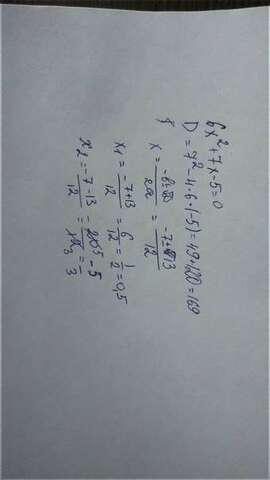 6x²+7x-5=0
D = 7²-4·6·(-5) = 49+120 = 169
x = -b±√D / 2a = -7±13 / 12
x₁ = -7+13 / 12 = 6/12 = 1/2 = 0,5
x₂ = -7-13 / 12 = 20 5 / 12 3 = -5/3